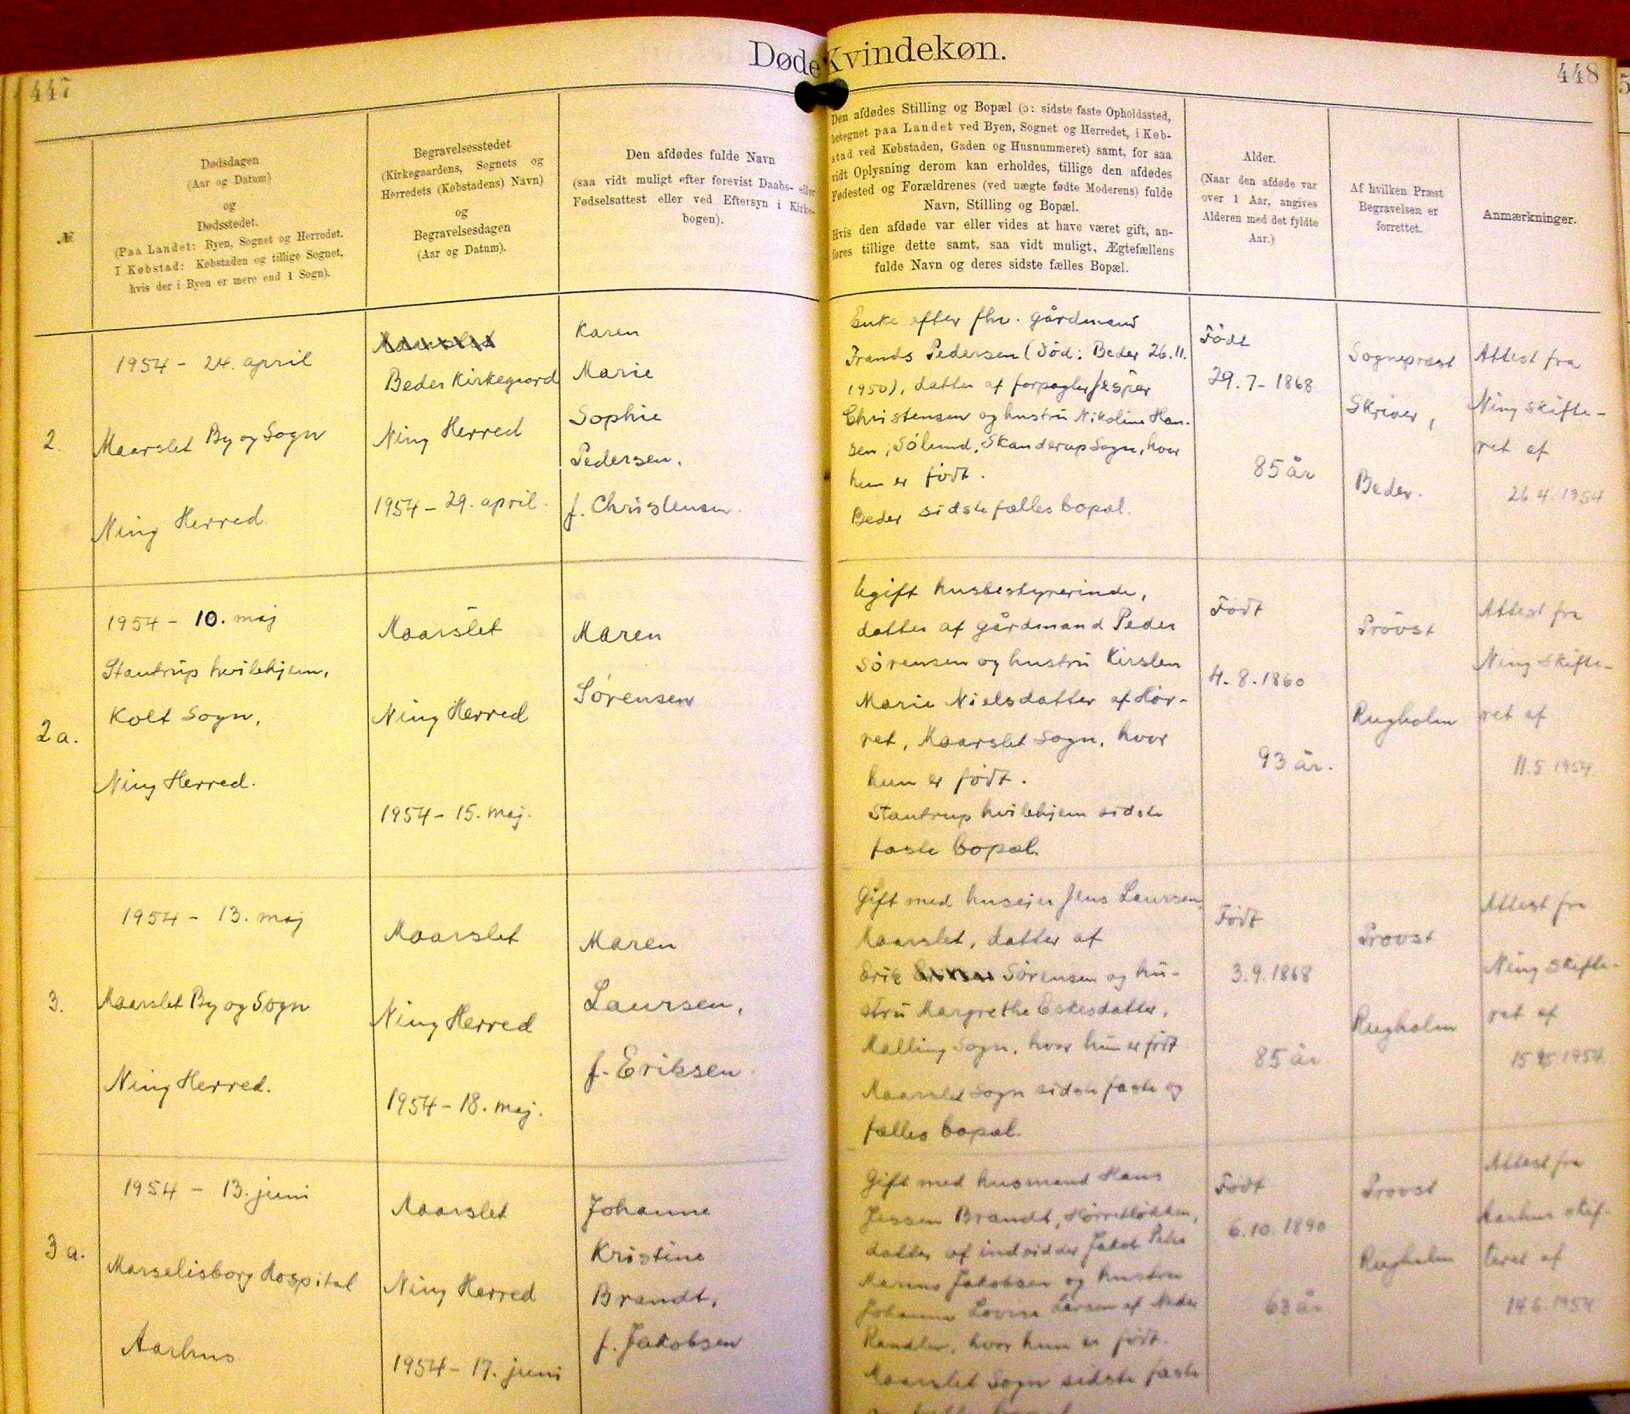 447
Døde Kvindekøn.
448
№
Dødsdagen
(Aar og Datum)
og
Dødsstedet.
(Paa Landet: Byen, Sognet og Herredet.
I Købstad: Købstaden og tillige Sognet,
hvis der i Byen er mere end 1 Sogn).
Begravelsesstedet
(Kirkegaardens, Sognets og
Herredets (Købstadens) Navn)
og
Begravelsesdagen
(Aar og Datum).
Den afdødes fulde Navn
(saa vidt muligt efter forevist Daabs- eller
Fødselsattest eller ved Eftersyn i Kirke-
bogen).
Den afdødes Stilling og Bopæl (ɔ: sidste faste Opholdssted,
betegnet paa Landet ved Byen, Sognet og Herredet, i Køb-
stad ved Købstaden, Gaden og Husnummeret) samt, for saa
vidt Oplysning derom kan erholdes, tillige den afdødes
Fødested og Forældrenes (ved uægte fødte Moderens) fulde
Navn, Stilling og Bopæl.
Hvis den afdøde var eller vides at have været gift, an-
føres tillige dette samt, saa vidt muligt, Ægtefællens
fulde Navn og deres sidste fælles Bopæl.
Alder.
(Naar den afdøde var
over 1 Aar, angives
Alderen med det fyldte
Aar.)
Af hvilken Præst
Begravelsen er
forrettet.
Anmærkninger.
2.
1954 - 24. april
Maarslet By og Sogn
Ning Herred
Beder Kirkegaard
Ning Herred
1954 - 29. april.
Karen
Marie
Sophie
Pedersen,
f. Christensen
Enke efter fhv. gårdmand
Frands Pedersen (død: Beder 26.11.
1950), datter af forpagter Jesper
Christensen og hustru Nikoline Han-
sen, Sølund, Skanderup Sogn, hvor
hun er født.
Beder sidste fælles bopæl.
Født
29.7-1868
85 år
Sognepræst
Skriver,
Beder.
Attest fra
Ning skifte-
ret af
26 4. 1954
2a.
1954 - 10. maj
Stautrup hvilehjem,
Kolt Sogn,
Ning Herred.
Maarslet
Ning Herred
1954 - 15. maj.
Maren
Sørensen
Ugift husbestyrerinde,
datter af gårdmand Peder
Sørensen og hustru Kirsten
Marie Nielsdatter af Hør-
ret, Maarslet Sogn, hvor
hun er født.
Stautrup hvilehjem sidste
faste bopæl.
Født
4.8.1860
93 år.
Provst
Rugholm
Attest fra
Ning Skifte-
ret af
11.5 1954
3.
1954 - 13. maj
Maarslet By og Sogn
Ning Herred.
Maarslet
Ning Herred
1954 - 18. maj.
Maren
Laursen,
f. Eriksen
Gift med husejer Jens Laursen,
Maarslet, datter af
Erik Sørensen og hu-
stru Margrethe Eskesdatter,
Malling Sogn, hvor hun er født
Maarslet Sogn sidste faste og
fælles bopæl.
Født
3.9.1868
85 år
Provst
Rugholm
Attest fra
Ning skifte-
ret af
15 5 1954
3a.
1954 - 13. juni
Marselisborg Hospital
Aarhus
Maarslet
Ning Herred
1954 - 17. juni
Johanne
Kristine
Brandt,
f. Jakobsen
Gift med husmand Hans
Jessen Brandt, Hørretløkken,
datter af indsidder Jakob Peder
Jakobsen og hustru
Johanne Lovise Larsen af Neder
Randlev, hvor hun er født.
Maarslet Sogn sidste faste
Født
6.10.1890
63 år
Provst
Rugholm
Attest fra
Aarhus skif-
teret af
14 6. 1954